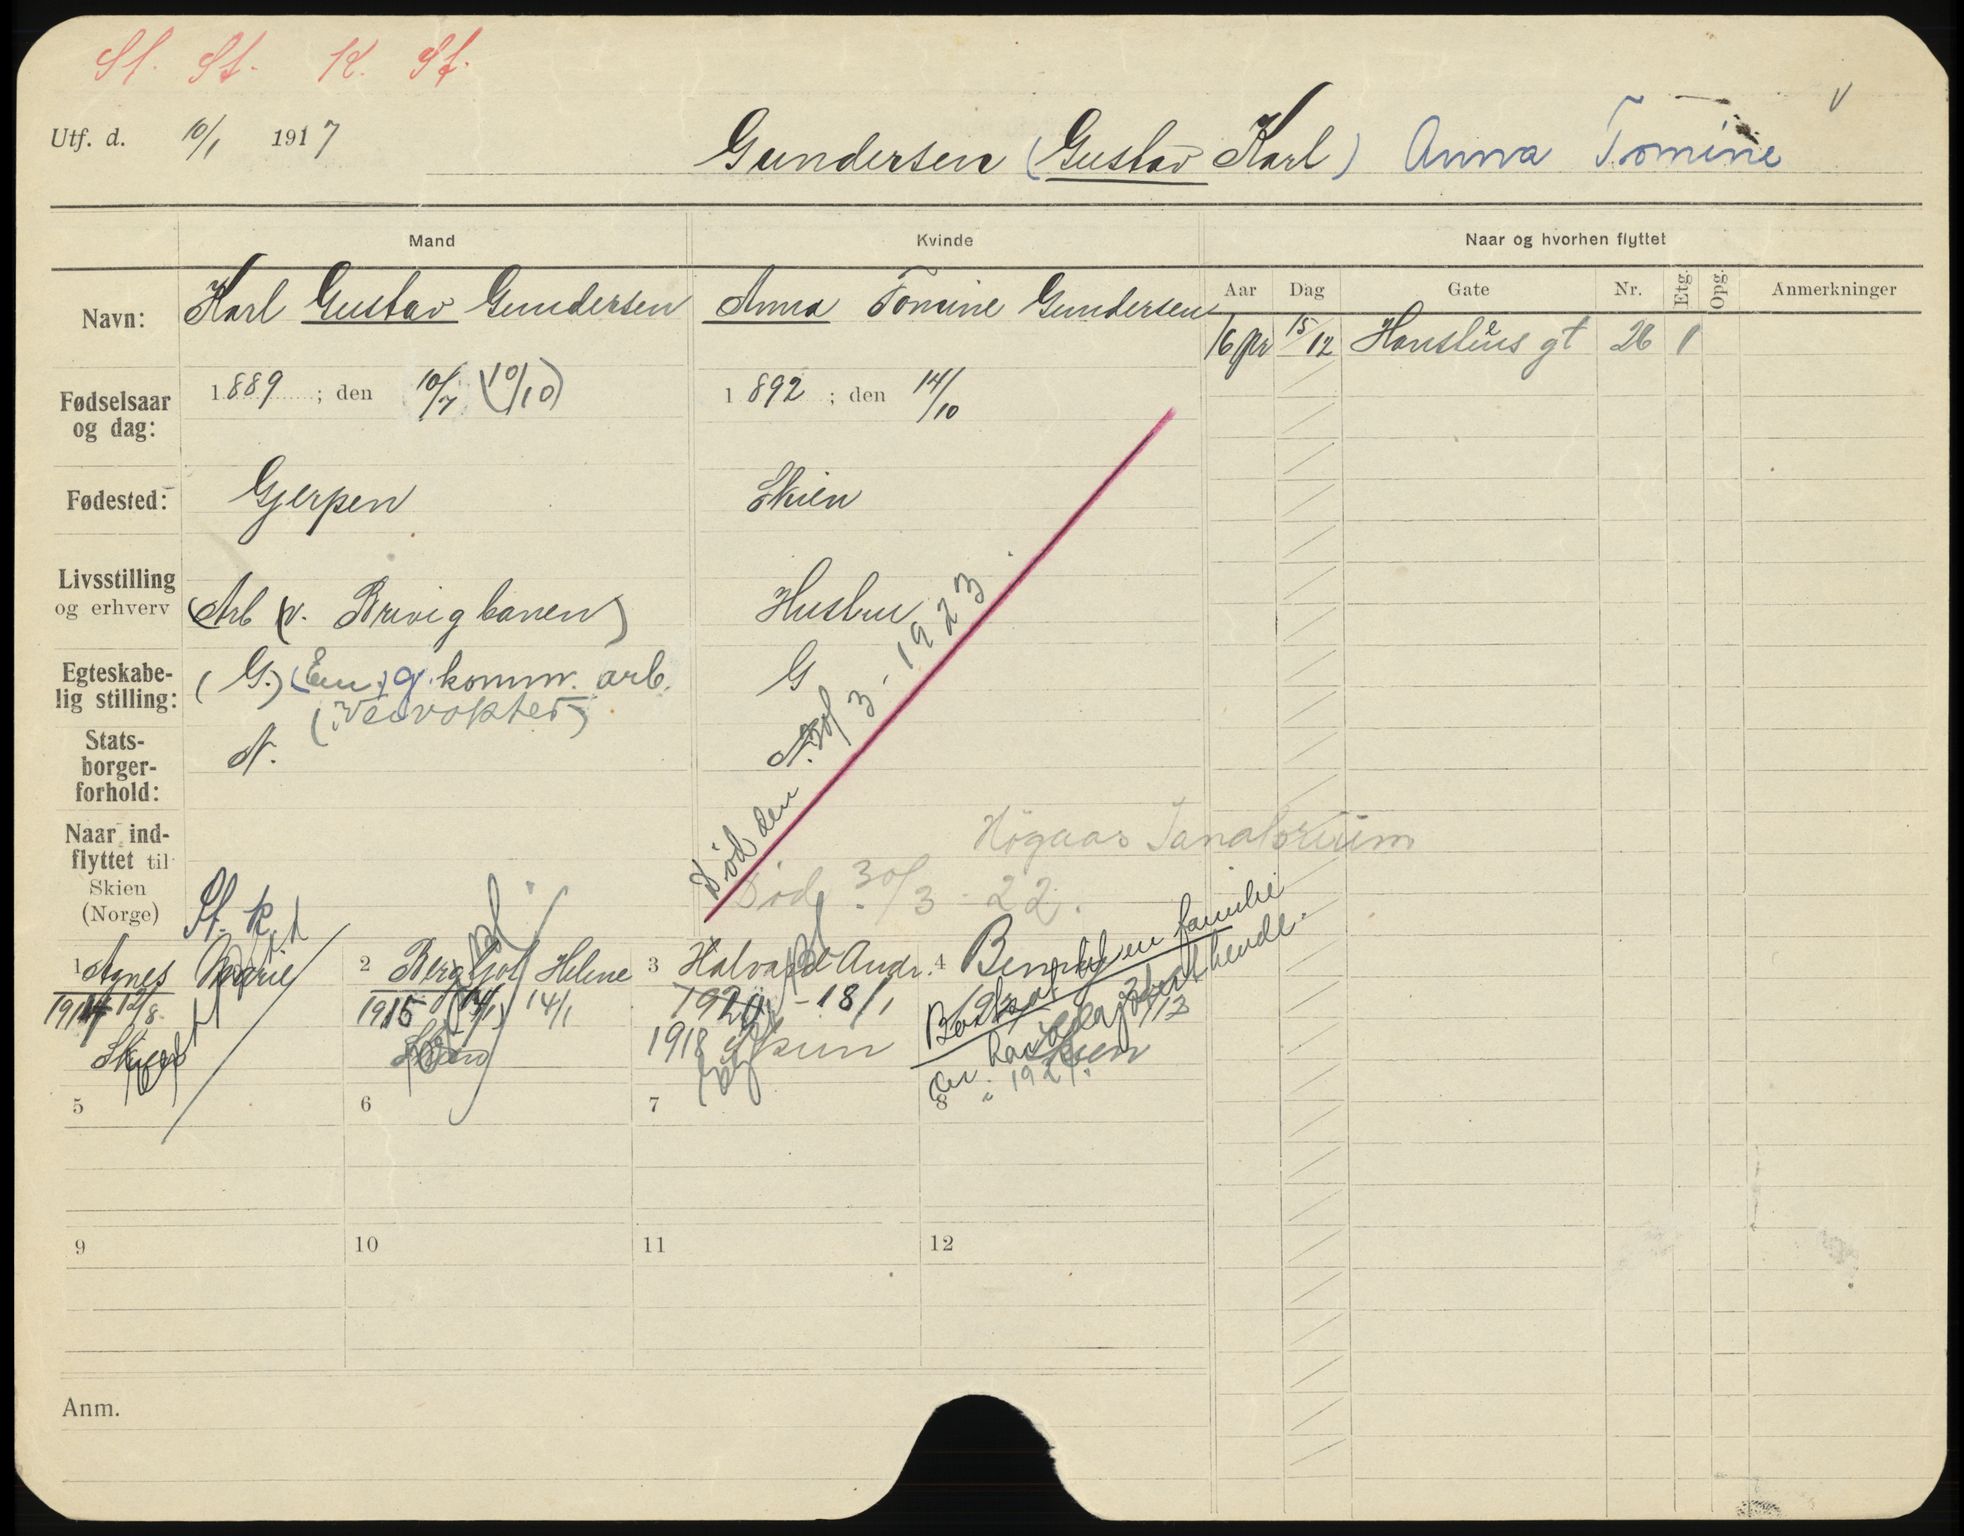 St. St. K. St.
Utf. d. 10/1 1917
Gundersen (Gustav Karl) Anna Tomine
Mand
Kvinde
Naar og hvorhen flyttet
Navn:
Karl Gustav Gundersen
Anna Tomine Gundersen
Aar Dag Gate Nr. Etg. Opg. Anmerkninger
15/12 gt 26 1
Fødselsaar
og dag:
1889 ; den 10/7 (10/10)
1892 ; den 14/10
Fødested:
Gjerpen
Skien
Livsstilling
og erhverv
(Arb (v. Brevigbanen)
Hustru
Egteskabe-
lig stilling:
(G.) (Em.) g. komm. arb.
G
Stats-
borger-
forhold:
N.
N.
Død den 30/3-1923
Naar ind-
flyttet til
Skien
(Norge)
Høgaas Sanatorium
Død 30/3-22.
St. k.
1 Agnes Marie
1914 12/8
Skien
2 Bergljot Helene
1915 14/1
Skien
3 Halvard Andr.
1920 - 18/1
1918 Skien
4 familie
3/12
Skien
1921.
5
6
7
8
9
10
11
12
Anm.